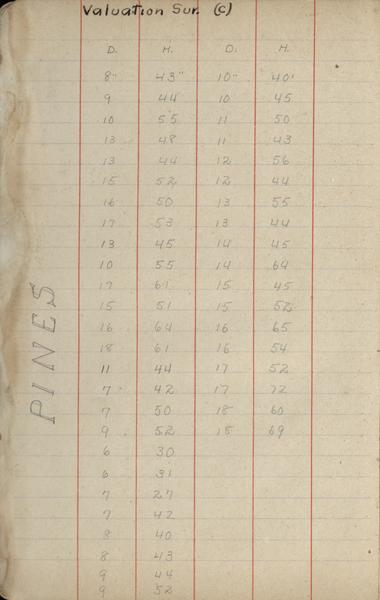 Valuation Sur. (C)
D. H. D. H.
8" 43" 10" 40'
9 44 10 45
10 55 11 50
13 48 11 43
13 44 12 56
15 52 12 44
16 50 13 55
17 53 13 44
13 45 14 45
10 55 14 64
17 61 15 45
15 51 15 52
16 64 16 65
18 61 16 54
11 44 17 52
7 42 17 72
7 50 18 60
9 52 18 69
6 30
6 31
7 27
7 42
8 40
8 43
9 44
9 52
PINES